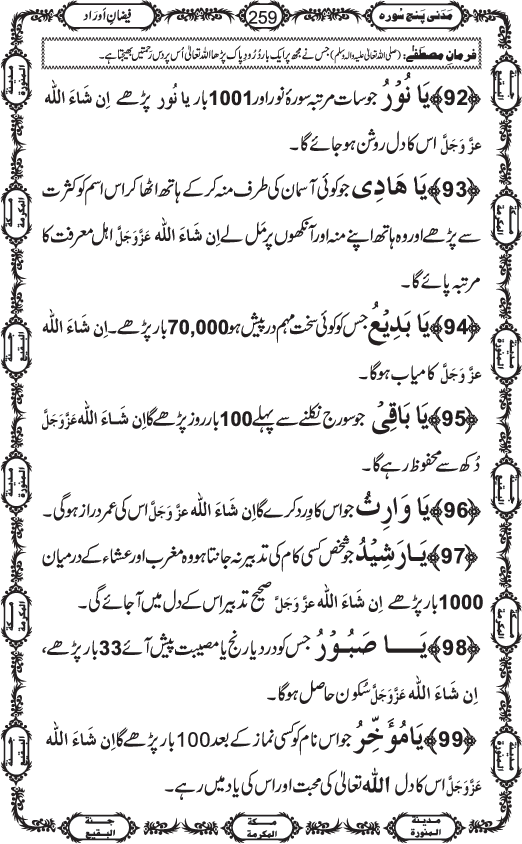 مَدَنی پنج سورہ
259
فیضانِ اَوراد
فرمانِ مصطفٰے: (صلی اللہ تعالیٰ علیہ والہ وسلم) جس نے مجھ پر ایک بار دُرُودِ پاک پڑھا اللہ تعالیٰ اُس پر دس رحمتیں بھیجتا ہے۔
﴿92﴾ یَا نُوْرُ جو سات مرتبہ سورۂ نور اور 1001 بار یا نُور پڑھے اِن شَاءَ اللہ
عزَّوَجَلَّ اس کا دل روشن ہو جائے گا۔
﴿93﴾ یَا ھَادِی جو کوئی آسمان کی طرف منہ کر کے ہاتھ اٹھا کر اس اسم کو کثرت
سے پڑھے اور وہ ہاتھ اپنے منہ اور آنکھوں پر مَل لے اِن شَاءَ اللہ عَزَّوَجَلَّ اہلِ معرفت کا
مرتبہ پائے گا۔
﴿94﴾ یَا بَدِیْعُ جس کو کوئی سخت مہم درپیش ہو 70,000 بار پڑھے۔ اِن شَاءَ اللہ
عزَّوَجَلَّ کامیاب ہو گا۔
﴿95﴾ یَا بَاقِیْ جو سورج نکلنے سے پہلے 100 بار روز پڑھے گا اِن شَاءَ اللہ عَزَّوَجَلَّ
دُکھ سے محفوظ رہے گا۔
﴿96﴾ یَا وَارِثُ جو اس کا وِرد کرے گا اِن شَاءَ اللہ عَزَّوَجَلَّ اس کی عمر دراز ہو گی۔
﴿97﴾ یَـارَشِیْدُ جو شخص کسی کام کی تدبیر نہ جانتا ہو وہ مغرب اور عشاء کے درمیان
1000 بار پڑھے اِن شَاءَ اللہ عزَّوَجَلَّ صحیح تدبیر اس کے دل میں آ جائے گی۔
﴿98﴾ یَـــا صَبُوْرُ جس کو درد یا رنج یا مصیبت پیش آئے 33 بار پڑھے،
اِن شَاءَ اللہ عَزَّوَجَلَّ سُکون حاصل ہو گا۔
﴿99﴾ یَامُؤَخِّرُ جو اس نام کو کسی نماز کے بعد 100 بار پڑھے گا اِن شَاءَ اللہ
عَزَّوَجَلَّ اس کا دل اللہ تعالیٰ کی محبت اور اس کی یاد میں رہے۔
مدینۃ المنورۃ
مکۃ المکرمۃ
جنۃ البقیع
مدینۃ المنورۃ
مکۃ المکرمۃ
جنۃ البقیع
مدینۃ المنورۃ
مکۃ المکرمۃ
جنۃ البقیع
مدینۃ المنورۃ
مکۃ المکرمۃ
جنۃ البقیع
مدینۃ المنورۃ
مکۃ المکرمۃ
جنۃ البقیع